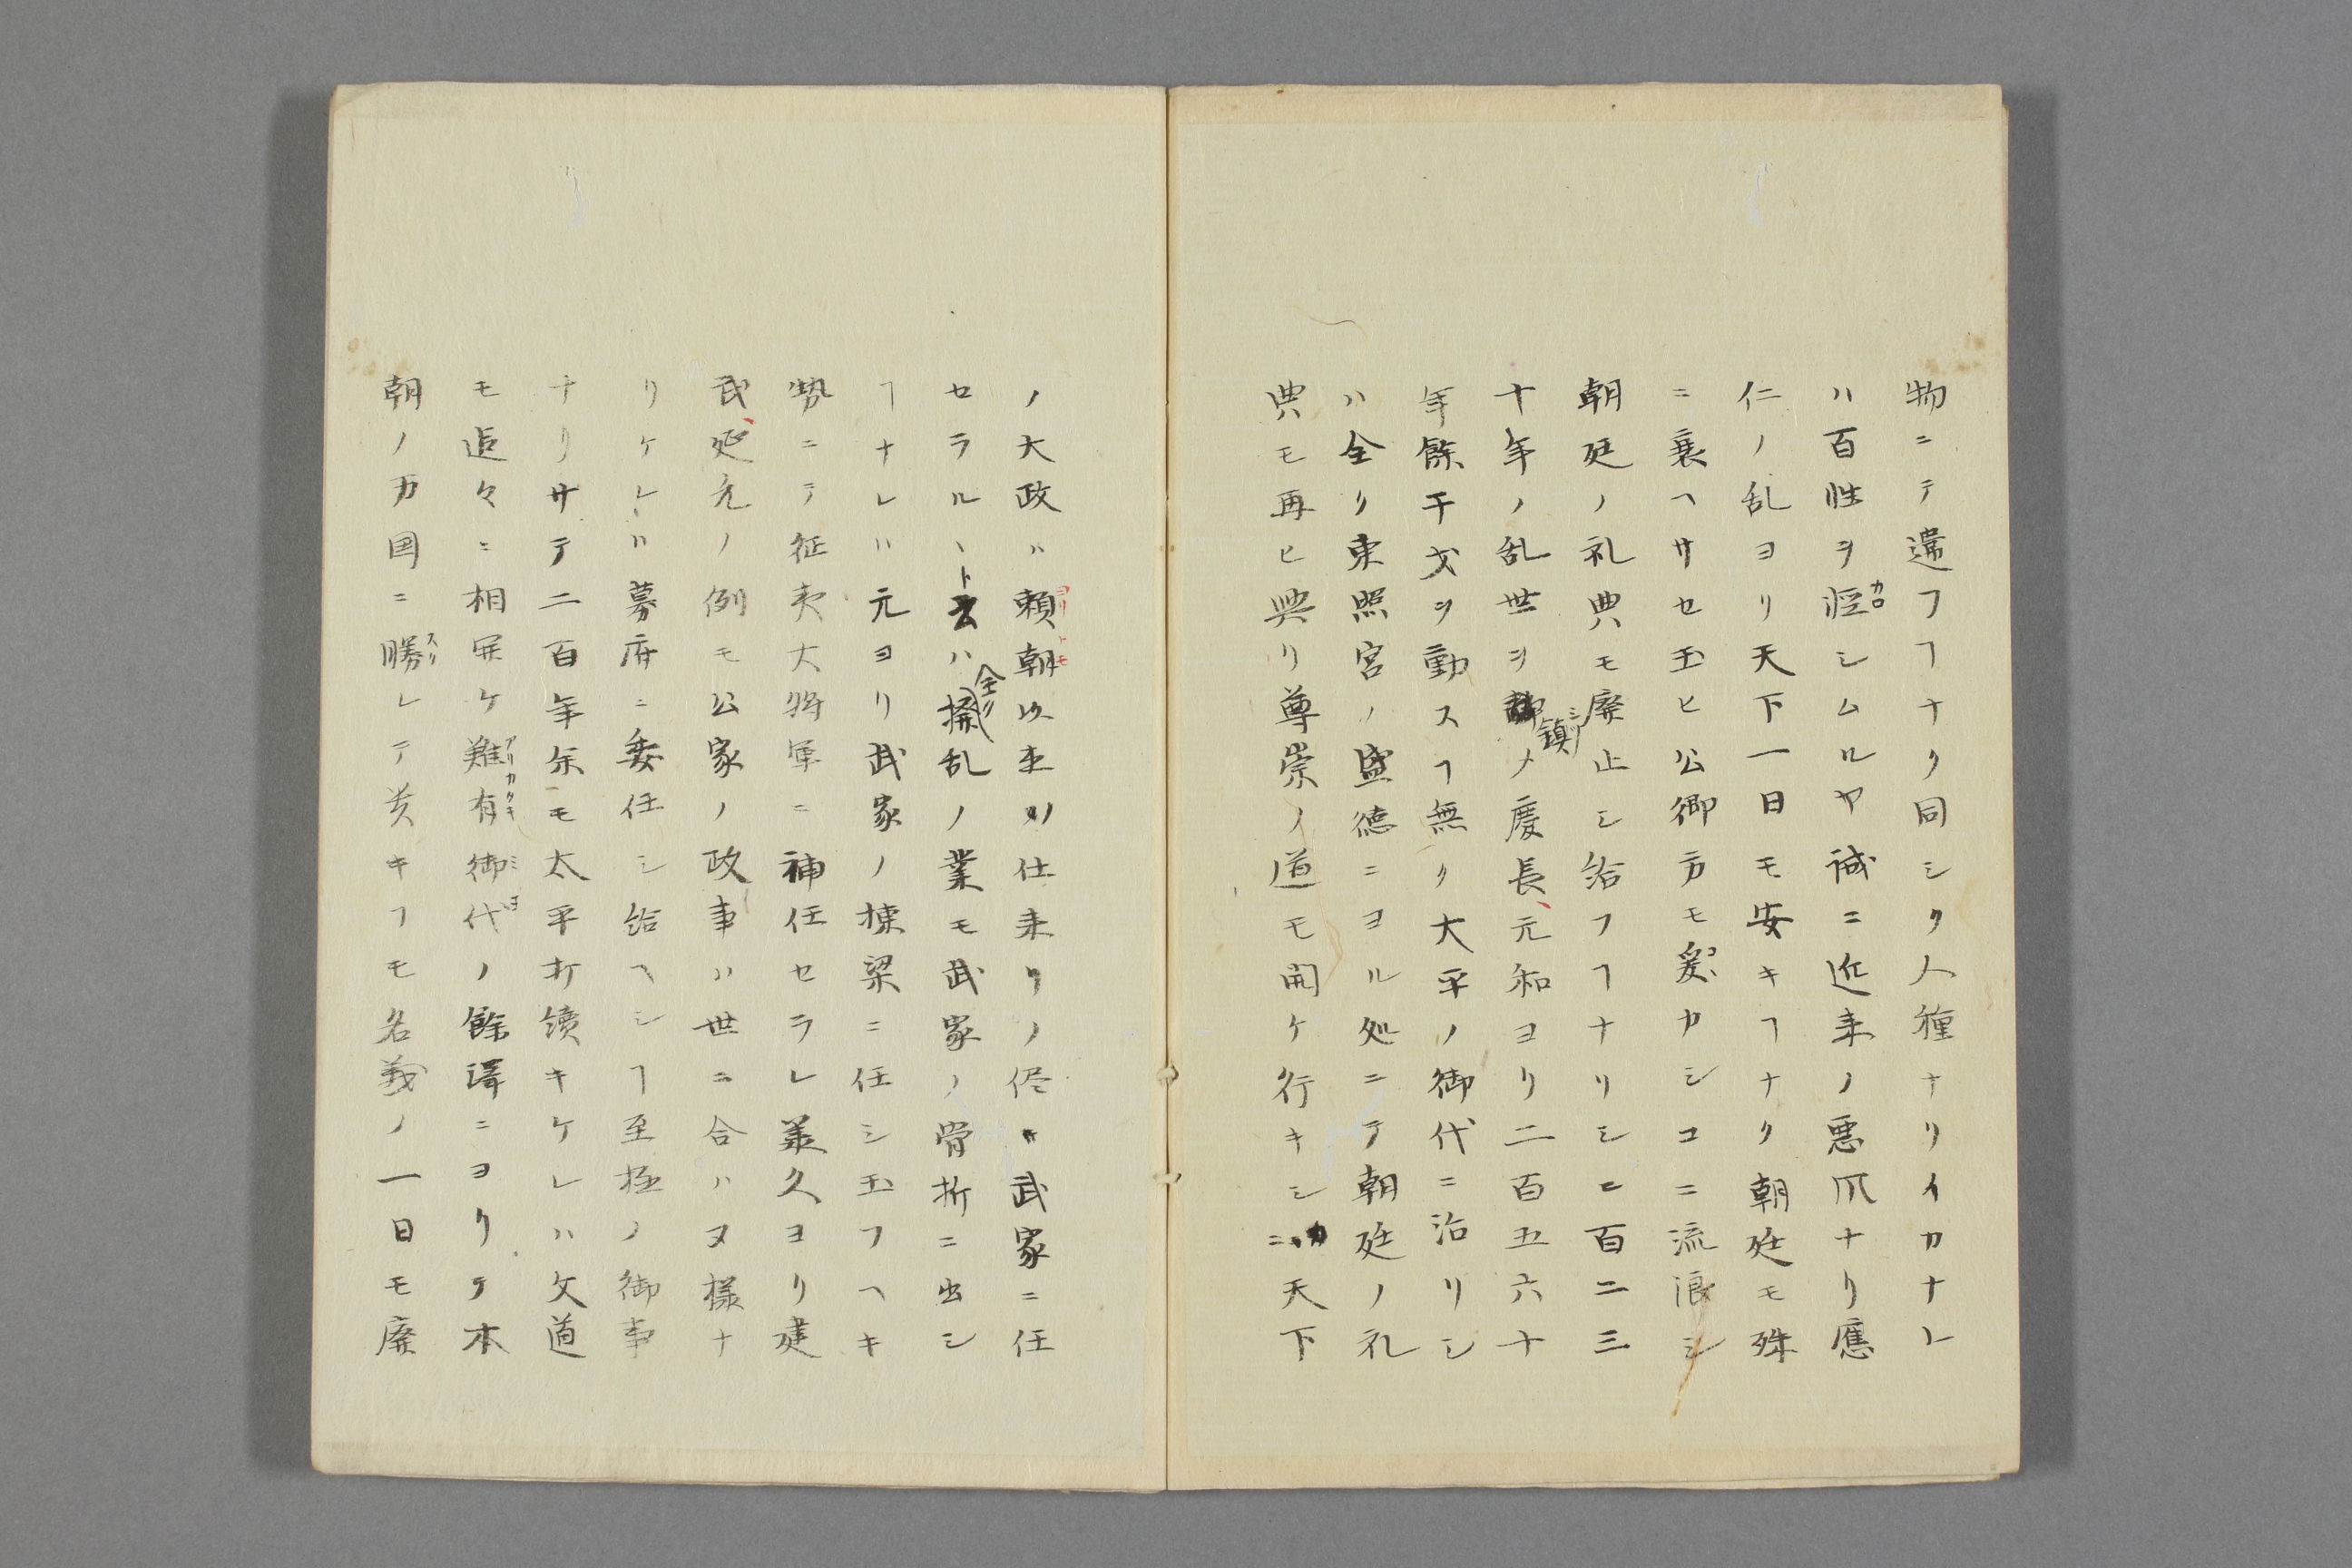 物ニテ違フヿナク同シク人種ナリイカナレ
ハ百姓ヲ軽シムルヤ誠ニ近来ノ悪爪ナリ應
仁ノ乱ヨリ天下一日モ安キヿナク朝廷モ殊
ニ衰ヘサセ玉ヒ公卿方モ爰カシコニ流浪シ
朝廷ノ礼典モ廃止シ給フヿナリシニ百二三
十年ノ乱世ヲ鎮メ慶長元和ヨリ二百五六十
年餘干戈ヲ動スヿ無ク大平ノ御代ニ治リシ
ハ全ク東照宮ノ盛徳ニヨル処ニテ朝廷ノ礼
典モ再ヒ興リ尊崇ノ道モ開ケ行キシカ天下
ノ大政ハ頼朝以来ノ仕来リノ侭ニ武家ニ任
セラルヽト云ハ全ク乱ノ業モ武家ノ骨折ニ出シ
ヿナレハ元ヨリ武家ノ棟梁ニ任シ玉フヘキ
勢ニテ征夷大将軍ニ補任セラレ義久ヨリ建
武延元ノ例モ公家ノ政事ハ世ニ合ハヌ様ナ
リケレハ募府ニ委任シ給ヘシヿ至極ノ御事
ナリサテ二百年余モ太平打續キケレハ文道
モ追々ニ相開ケ難有御代ノ餘澤ニヨリテ本
朝ノ万国ニ勝レテ美キヿモ名義ノ一日モ廃